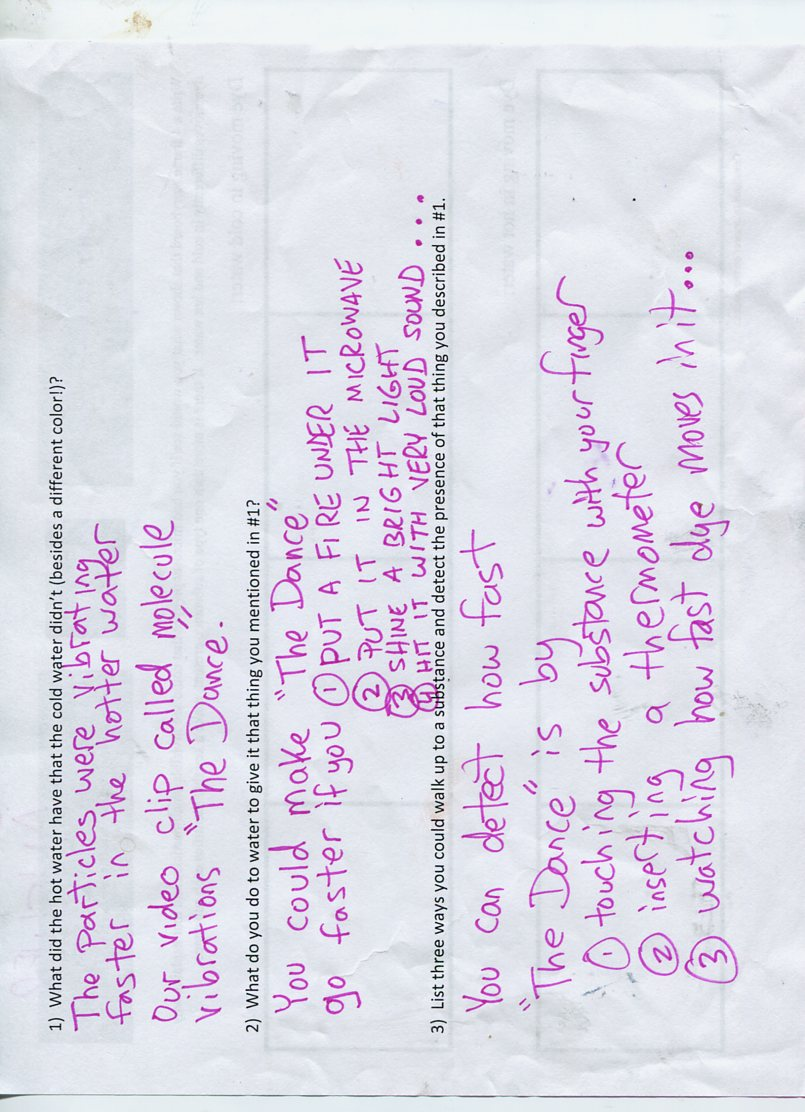 1) What did the hot water have that the cold water didn't (besides a different color!)?
The Particles were vibrating
faster in the hotter water
Our video clip called molecule
vibrations "The Dance".
2) What do you do to water to give it that thing you mentioned in #1?
You could make "The Dance"
go faster if you ① PUT A FIRE UNDER IT
② PUT IT IN THE MICROWAVE
③ SHINE A BRIGHT LIGHT
④ HIT IT WITH VERY LOUD SOUND...
3) List three ways you could walk up to a substance and detect the presence of that thing you described in #1.
You can detect how fast
"The Dance" is by
① touching the substance with your finger
② inserting a thermometer
③ watching how fast dye moves in it...